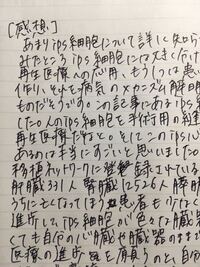 [感想]
あまりips細胞について詳しく知ら
みたところips細胞には大きく分け
再生医療への応用、もう1つは患
作り、それを病気のメカニズム解明
ものだそうです。この記事にあるips
した〇人のips細胞を手術用の
再生医療だなと。そしてこのips
あるのは本当にすごいと思いました
移植ネットワークに登録されている
肝臓331人 腎臓12526人 膵臓
うちに亡くなってほう患者も少なく
進歩して、ips細胞が色々な臓
くても自分の心臓や臓器のまま
医療の進歩